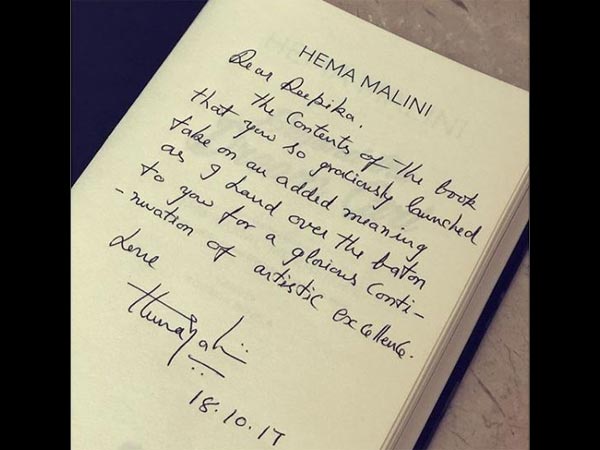 HEMA MALINI
Dear Deepika,
The Contents of the book
that you so graciously launched
take on an added meaning
as I hand over the baton
to you for a glorious conti-
-nuation of artistic excellence.
Love
18.10.17